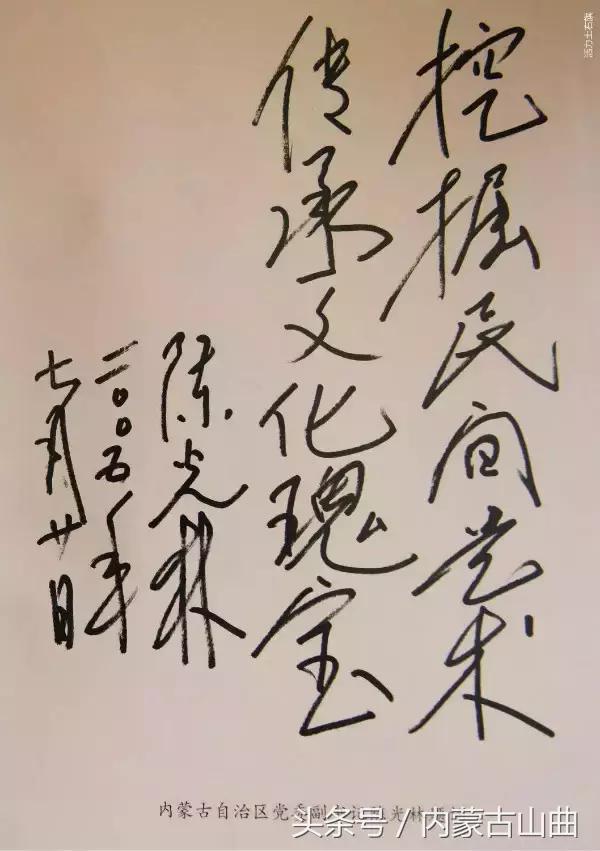 挖掘民间艺术
传承文化瑰宝
陈光林
二〇〇五年
七月廿日
内蒙古自治区党委副
头条号 / 内蒙古山曲
活力土右旗